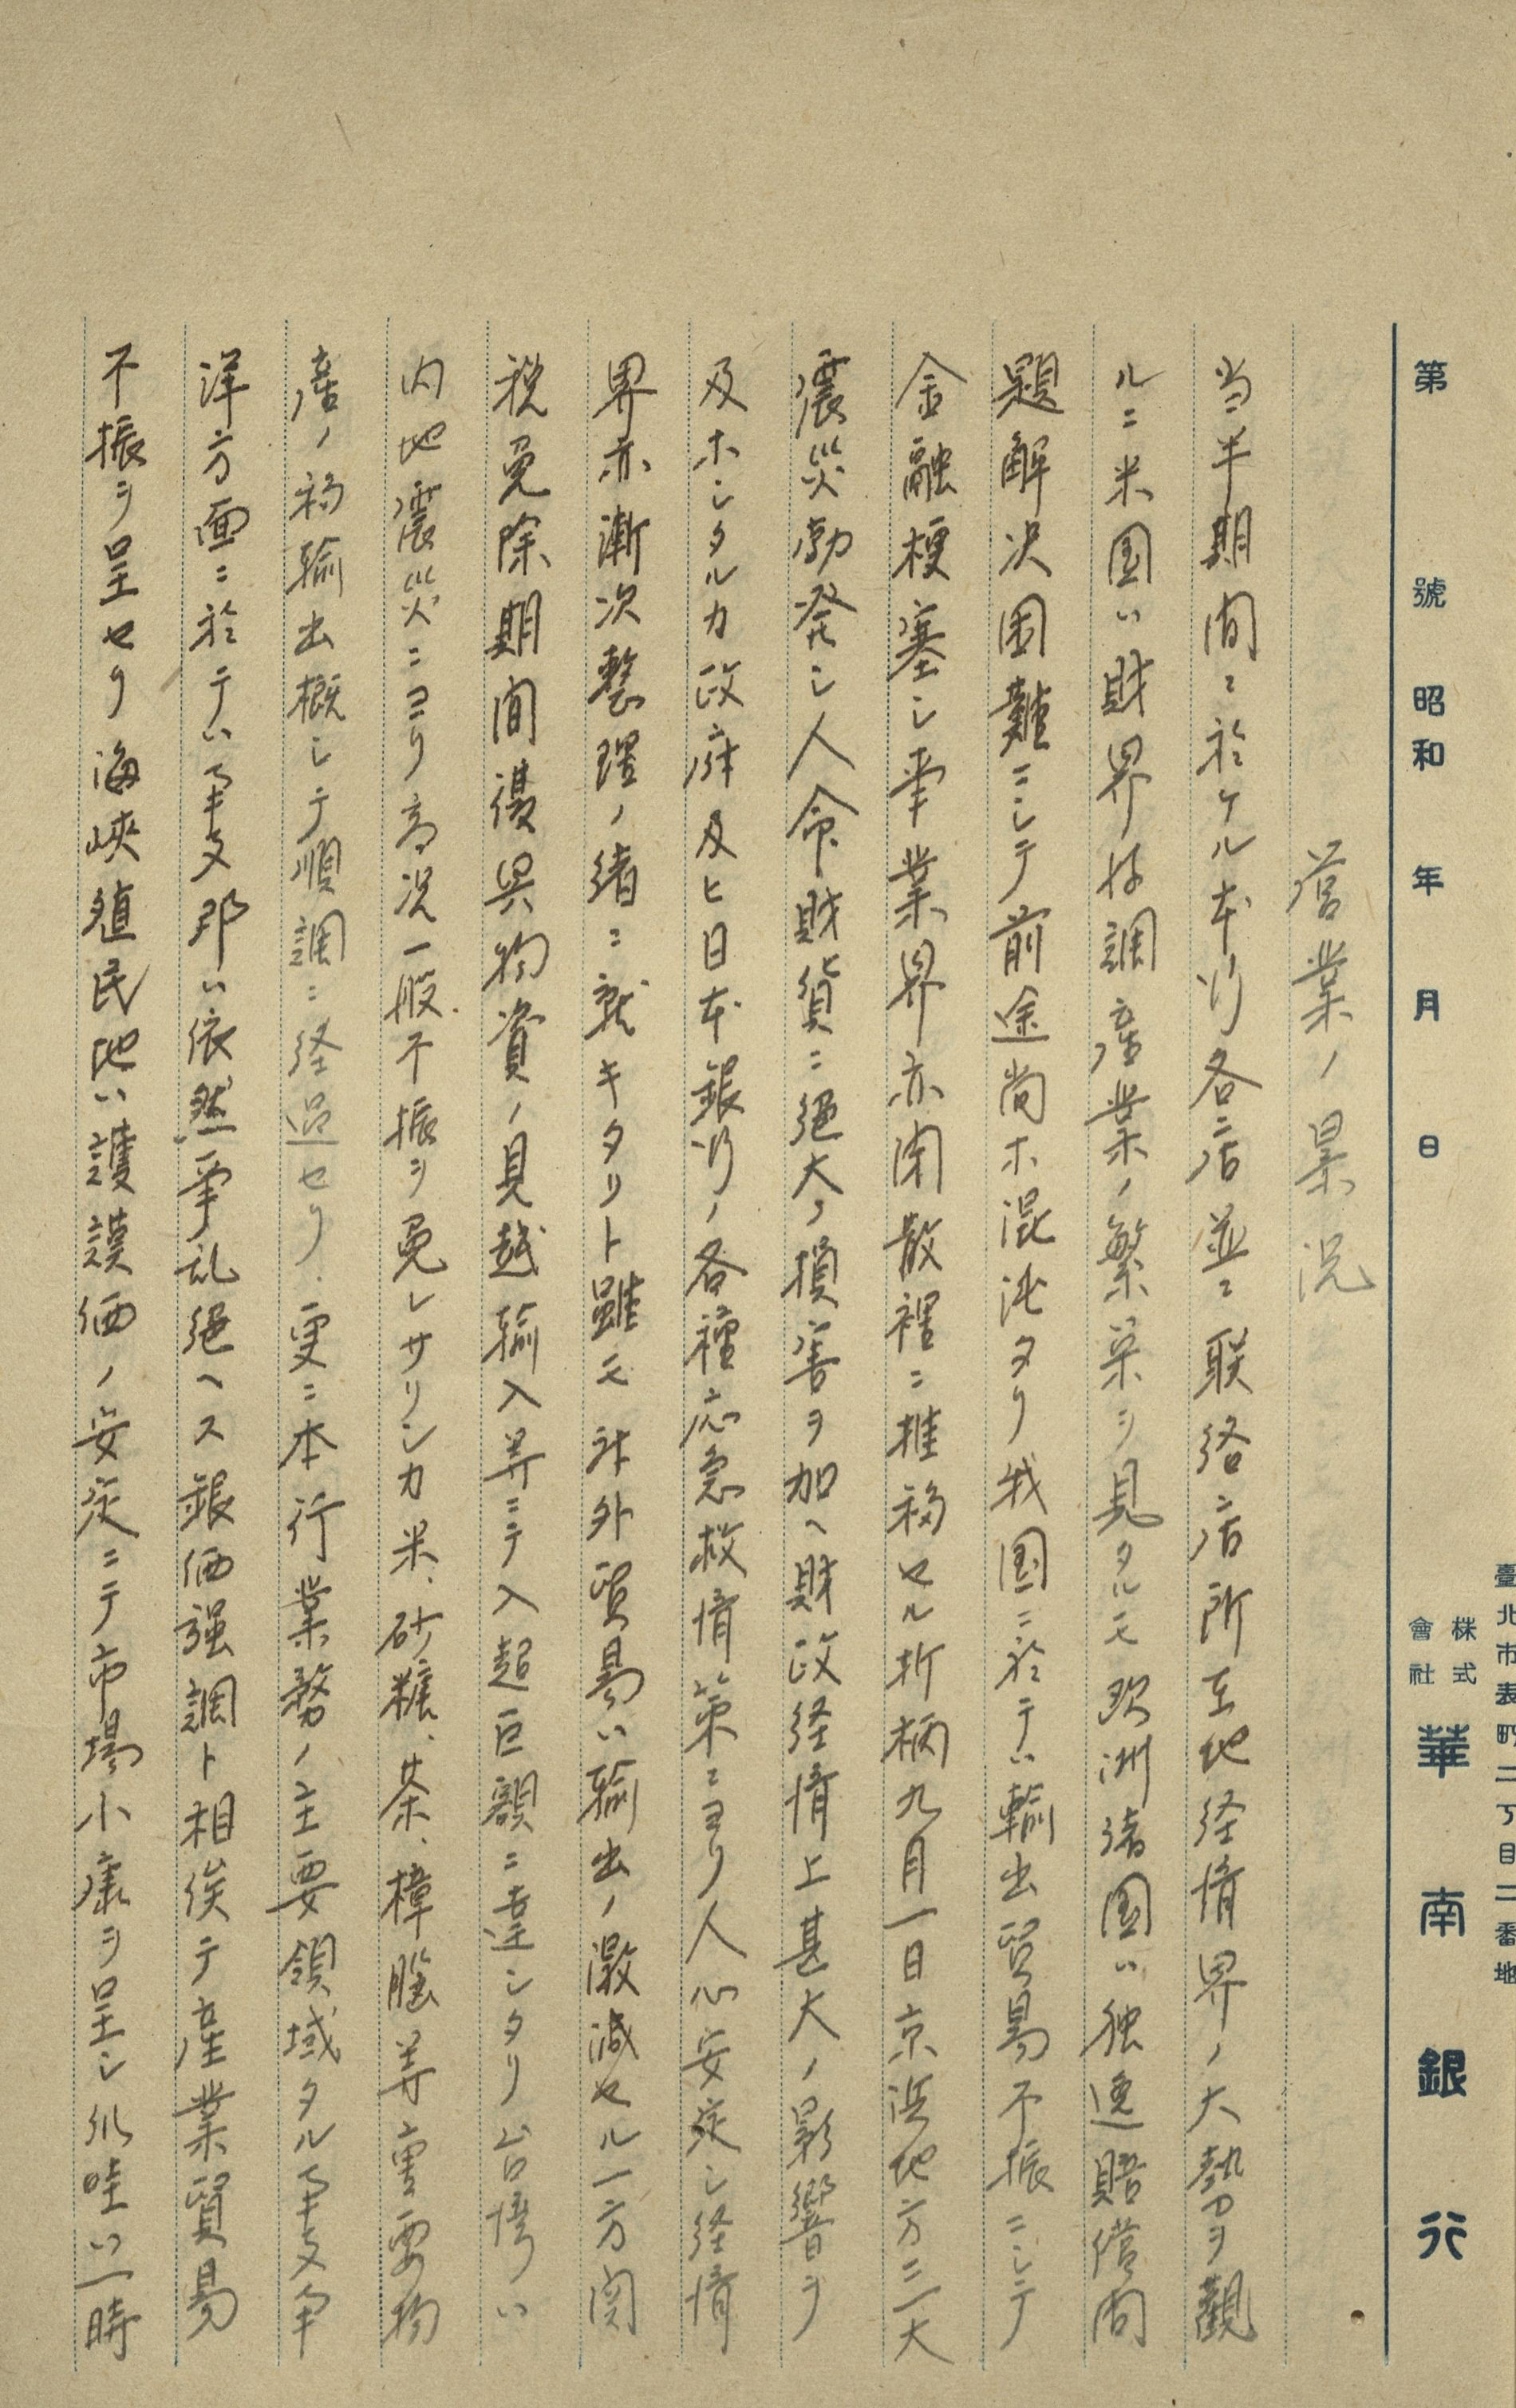 臺北市表町二丁目二番地
株式會社 華南銀行
第 號 昭和 年 月 日
営業ノ景況
当半期間ニ於ケル本行各店並ニ联络店所在地経済界ノ大勢ヲ觀
ルニ米国ハ財界好調産業ノ繁栄ヲ見タルモ欧洲諸国ハ独逸賠償問
題解決困難ニシテ前途尚ホ混沌タリ我国ニ於テハ輸出貿易不振ニシテ
金融梗塞シ事業界亦閑散裡ニ推移セル折柄九月一日京浜地方ニ大
震災勃発シ人命財貨ニ絕大ノ損害ヲ加ヘ財政経済上甚大ノ影響ヲ
及ホシタルカ政府及ヒ日本銀行ノ各種応急救済策ニヨリ人心安定シ経済
界亦漸次整理ノ緒ニ就キタリト雖モ対外貿易ハ輸出ノ激減セル一方関
税免除期間復興物資ノ見越輸入等ニテ入超巨額ニ達シタリ台湾ハ
内地震災ニヨリ商況一般不振ヲ免レサリシカ米、砂糖、茶、樟脳等重要物
産ノ移輸出概シテ順調ニ経過セリ、更ニ本行業務ノ主要領域タル支南
洋方面ニ於テハ支那ハ依然争乱絕ヘス銀価强調ト相俟テ産業貿易
不振ヲ呈セリ海峡殖民地ハ護謨価ノ安定ニテ市場小康ヲ呈シ爪哇ハ一時